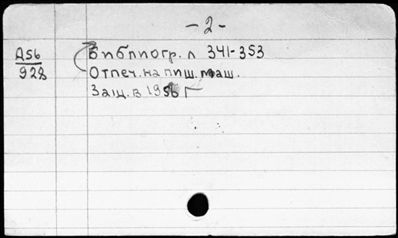 - 2 -
Д56
928
Библиогр. л 341-353
Отпеч. на пиш. маш.
Защ. в 1956 г